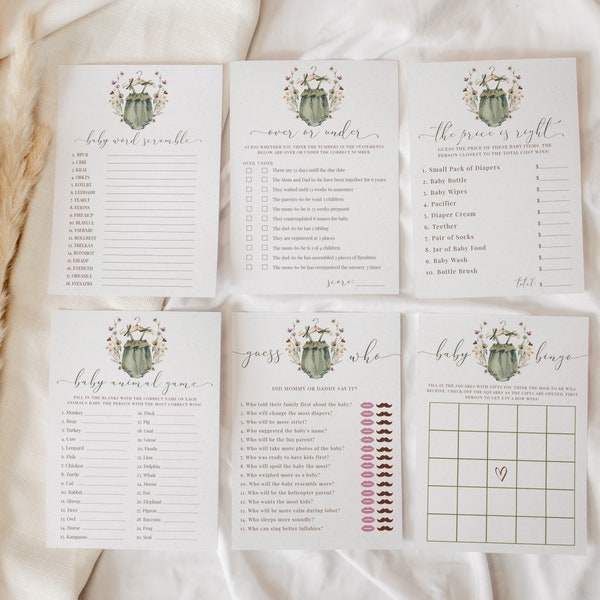 baby word scramble
over or under
GUESS WHETHER YOU THINK THE NUMBERS IN THE STATEMENTS
BELOW ARE OVER OR UNDER THE CORRECT NUMBER
OVER UNDER
There are 52 days until the due date
The Mom and Dad-to-be have been together for 6 years
They waited until 12 weeks to announce
The parents-to-be want 3 children
The mom-to-be is 32 weeks pregnant
They contemplated 8 names for baby
The dad-to-be has 1 sibling
They are registered at 2 places
The mom-to-be is 1 of 4 children
The dad-to-be has assembled 3 pieces of furniture
The mom-to-be has reorganized the nursery 3 times
score:
the price is right
GUESS THE PRICE OF THESE BABY ITEMS. THE
PERSON CLOSEST TO THE TOTAL COST WINS!
1. Small Pack of Diapers $
2. Baby Bottle $
3. Baby Wipes $
4. Pacifier $
5. Diaper Cream $
6. Teether $
7. Pair of Socks $
8. Jar of Baby Food $
9. Baby Wash $
10. Bottle Brush $
total: $
baby animal game
FILL IN THE BLANKS WITH THE CORRECT NAME OF EACH
ANIMALS BABY. THE PERSON WITH THE MOST CORRECT WINS!
1. Monkey
2. Bear
3. Turkey
4. Cow
5. Leopard
6. Fish
7. Chicken
8. Turtle
9. Cat
10. Rabbit
11. Sheep
12. Deer
13. Owl
14. Horse
15. Kangaroo
16. Duck
17. Pig
18. Goat
19. Goose
20. Panda
21. Lion
22. Dolphin
23. Whale
24. Moose
25. Fox
26. Elephant
27. Pigeon
28. Raccoon
29. Frog
30. Seal
guess who
DID MOMMY OR DADDY SAY IT?
1. Who told their family first about the baby?
2. Who will change the most diapers?
3. Who will be more strict?
4. Who suggested the baby's name?
5. Who will be the fun parent?
6. Who will take more photos of the baby?
7. Who was ready to have kids first?
8. Who will spoil the baby the most?
9. Who weighed more as a baby?
10. Who will the baby resemble more?
11. Who will be the helicopter parent?
12. Who wants the most kids?
13. Who will be more calm during labor?
14. Who sleeps more soundly?
15. Who can sing better lullabies?
baby bingo
FILL IN THE SQUARES WITH GIFTS YOU THINK THE MOM TO BE WILL
RECEIVE. CHECK OFF THE SQUARES AS THE GIFTS ARE OPENED. FIRST
PERSON TO GET 5 IN A ROW WINS!